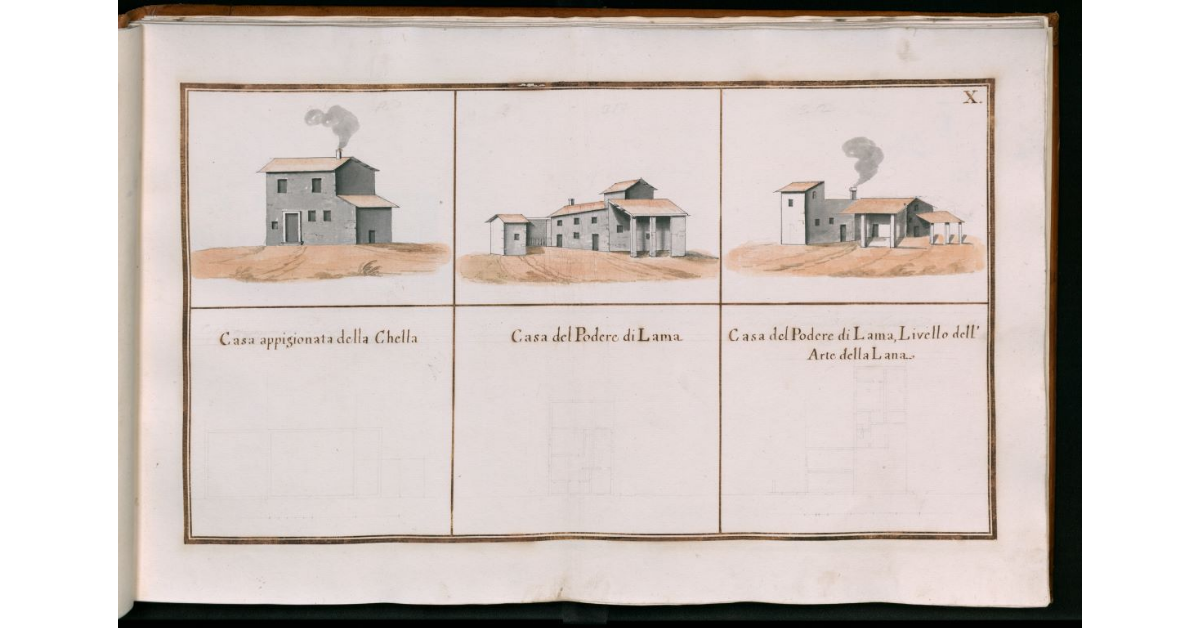 X.
Casa appigionata della Chella
Casa del Podere di Lama
Casa del Podere di Lama, Livello dell'
Arte della Lana.